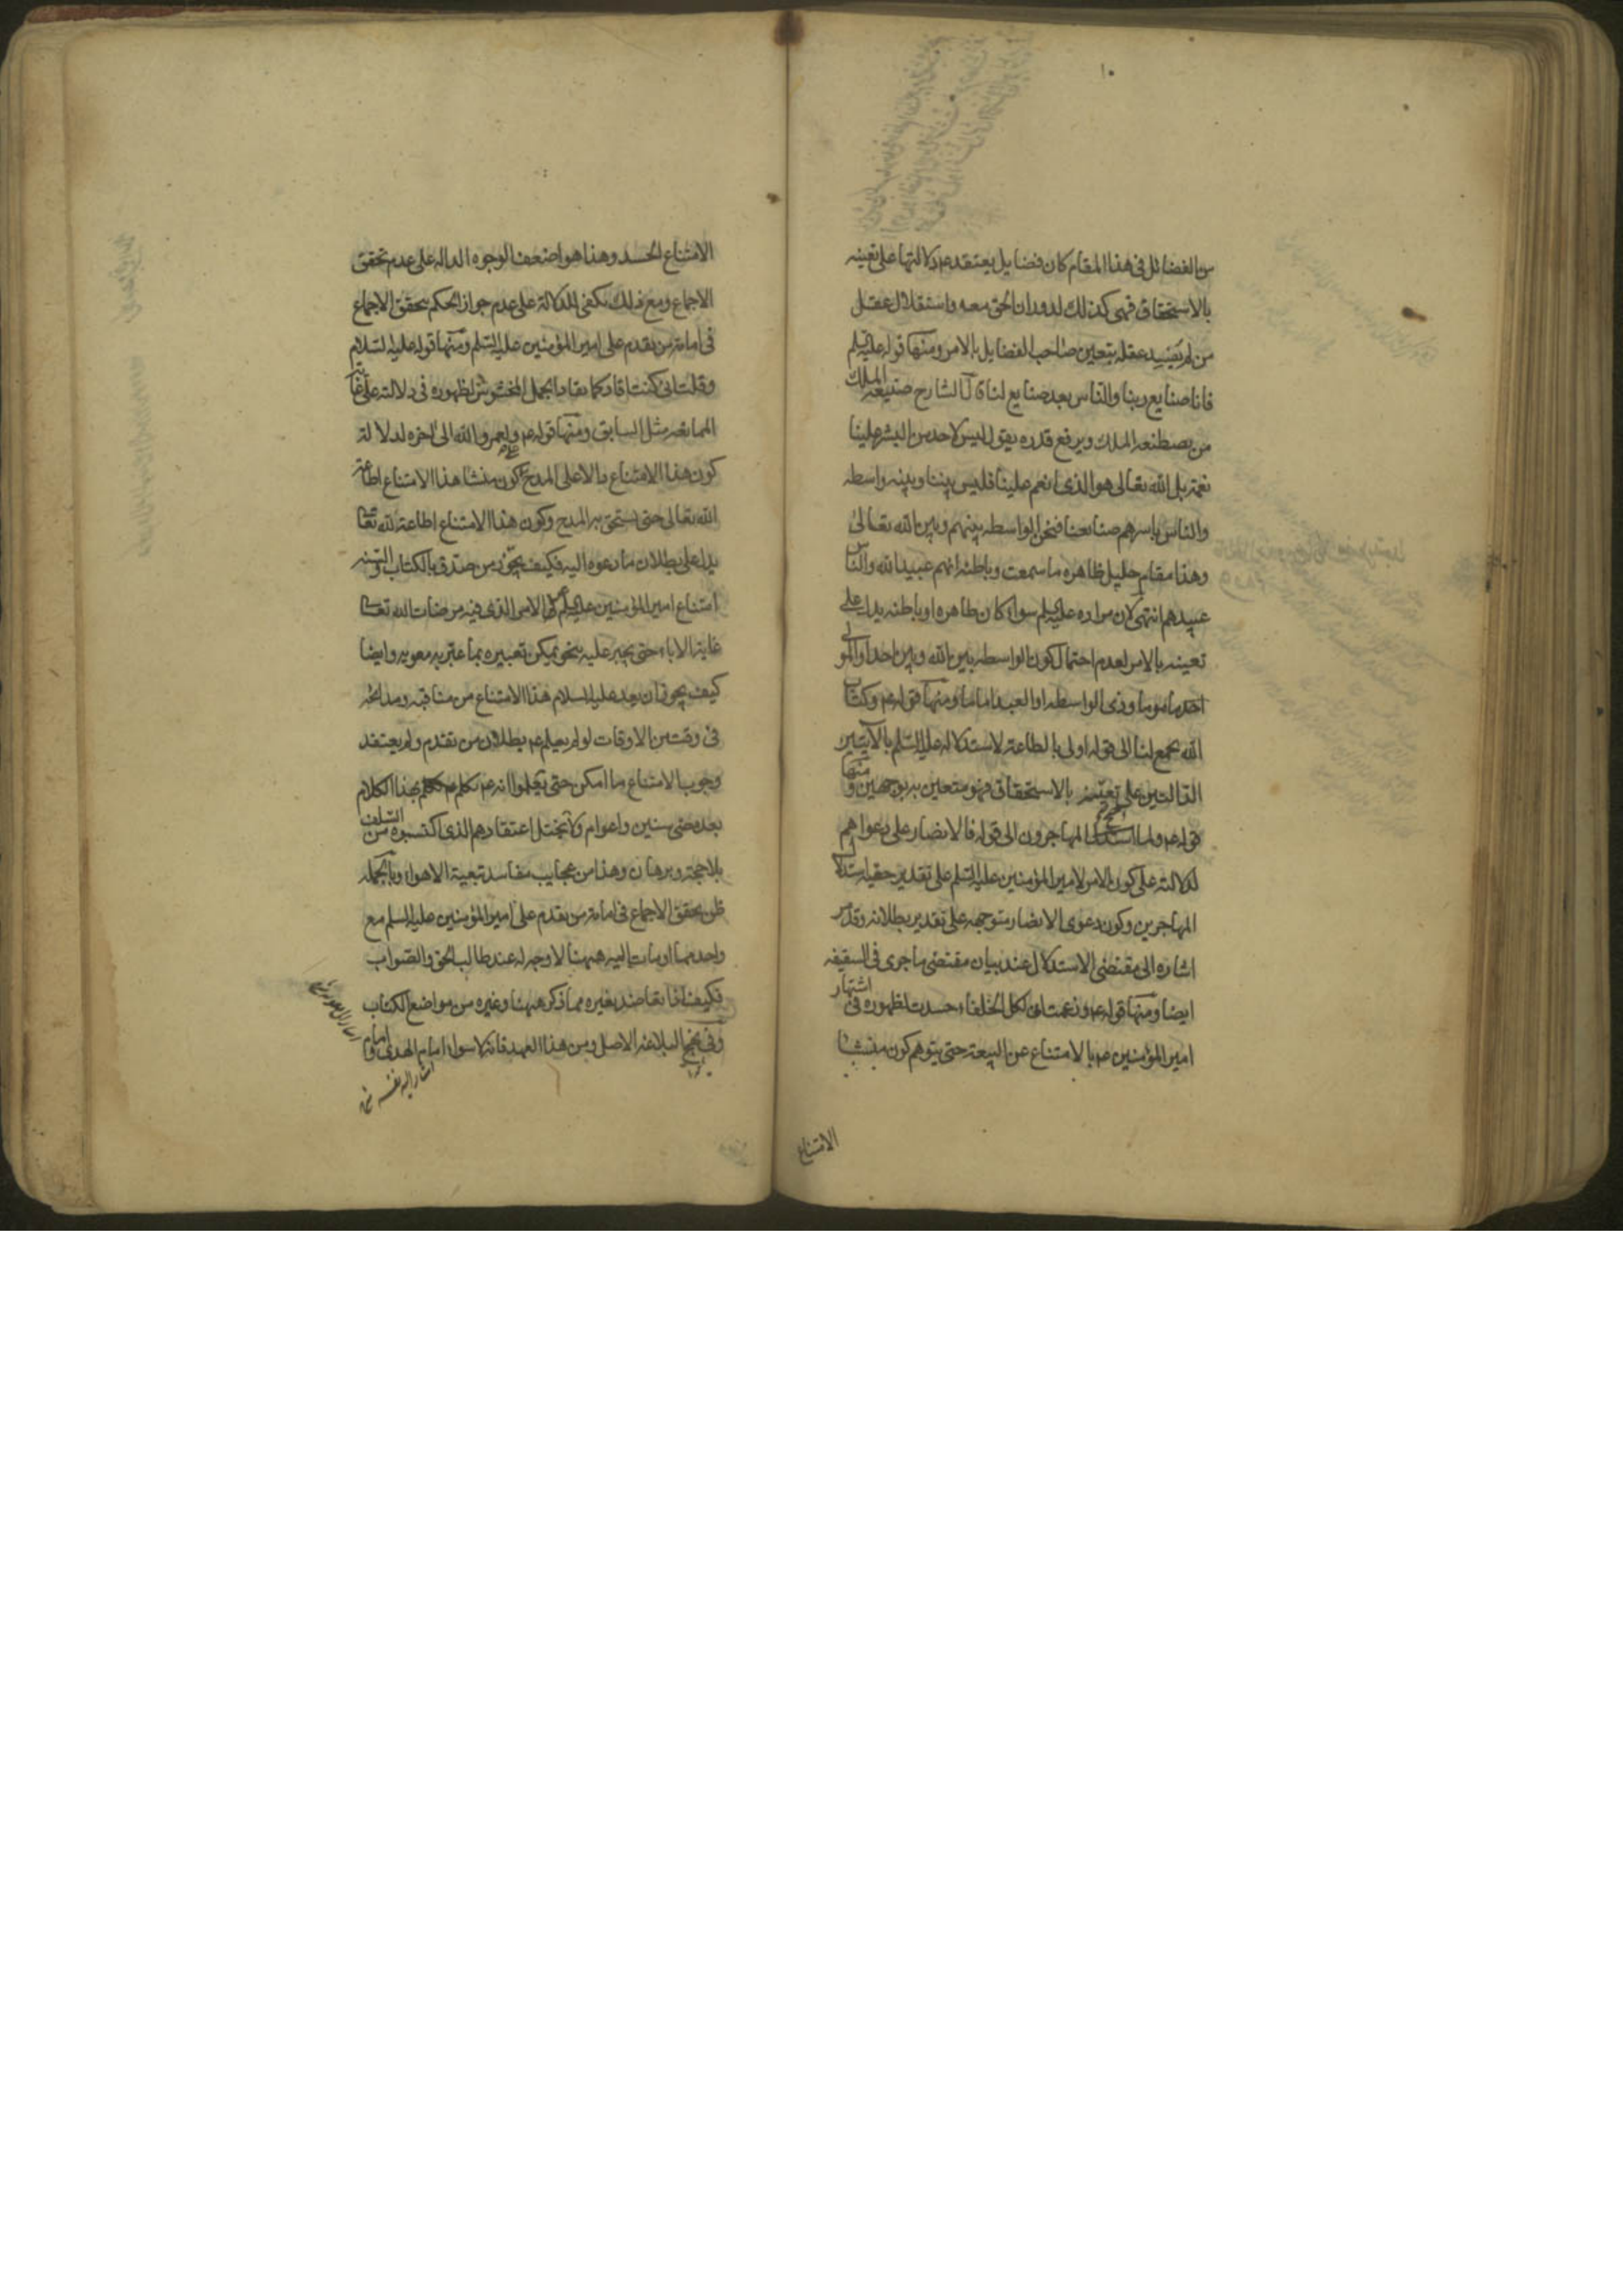 ١٠
من الفضائل في هذا المقام كان فضايل يعتقدعم دلالتها على تعينه
بالاستحقاق فهى كذلك لدوران الحق معه واستقلال عقل
من لم يفسد عقله بتعين صاحب الفضايل بالامر ومنها قوله عليه السلم
فانا صنايع ربنا والناس بعد صنايع لنا قال الشارح صنيعة الملك
من يصطنعه الملك ويرفع قدره يقول ليس لاحد من البشر علينا
نعمة بل الله تعالى هو الذى انعم علينا فليس بيننا وبينه واسطه
والناس باسرهم صنايعنا فنحن الواسطه بينهم وبين الله تعالى
وهذا مقام جليل ظاهره ما سمعت وباطنه انهم عبيد الله والناس
عبيدهم انتهى لان مراده عليه السلم سواء كان ظاهره او باطنه يدل على
تعينه بالامر لعدم احتمال كون الواسطه بين الله وبين احد او المولى
احدهما موما وذى الواسطه او العبد اماما ومنها قوله عم وكتاب
الله يجمع لنا الى قوله اولى بالطاعة لاستدلاله عليه السلم بالآيتين
الدالتين على تعينه بالاستحقاق فهو متعين به بوجهين ومنها
قوله عم ولما احتج المهاجرون الى قوله فالانصار على دعواهم
لدلالته على كون الامر لامير المؤمنين عليه السلم على تقدير حقية استدلال
المهاجرين وكون دعوى الانصار متوجهه على تقدير بطلانه وقد مر
اشاره الى مقتضى الاستدلال عند بيان مقتضى ما جرى في السقيفه
ايضا ومنها قوله عم وزعمت انى لكل الخلفاء حسدت لظهوره في اشتهار
امير المؤمنين عم بالامتناع عن البيعة حتى يتوهم كون منشا
الامتناع
الامتناع الحسد وهذا هو اضعف الوجوه الداله على عدم تحقق
الاجماع ومع ذلك يكفى للدلالة على عدم جواز الحكم بتحقق الاجماع
في امامة من تقدم على امير المؤمنين عليه السلم ومنها قوله عليه السلام
وقلت انى كنت اقاد كما يقاد الجمل المخشوش لظهوره في دلالته على غاية
الممانعه مثل السابق ومنها قوله عم ولعمر والله الى اخره لدلالة
كون هذا الامتناع دالا على المدح كون منشا هذا الامتناع اطاعة
الله تعالى حتى يستحق به المدح وكون هذا الامتناع اطاعة لله تعالى
يدل على بطلان ما دعوه اليه فكيف يجوز من صدق بالكتاب والسنه
امتناع امير المؤمنين عليه السلم عن الامر الذى فيه مرضات الله تعالى
غاية الاباء حتى يجبر عليه بنحو يمكن تعبيره بما عبر به معويه وايضا
كيف يجوز ان يعد عليه السلام هذا الامتناع من مناقبه ومدائحه
في وقت من الاوقات لو لم يعلم عم بطلان من تقدم ولم يعتقد
وجوب الامتناع ما امكن حتى يعلموا انه عم تكلم بهذا الكلام
بعد مضى سنين واعوام ولا يختل اعتقادهم الذى اكتسبوه من السلف
بلا حجة وبرهان وهذا من عجايب مفاسد تبعية الاهواء وبالجمله
ظن تحقق الاجماع في امامة من تقدم على امير المؤمنين عليه السلم مع
واحد مما اومات اليه ههنا لا وجه له عند طالب الحق والصواب
فكيف اذا تعاضد بغيره مما ذكر ههنا وغيره من مواضع الكتاب
وفي نهج البلاغه الاصل ومن هذا العهد فانه لا سواء امام الهدى وامام
اشار اليه نفسه